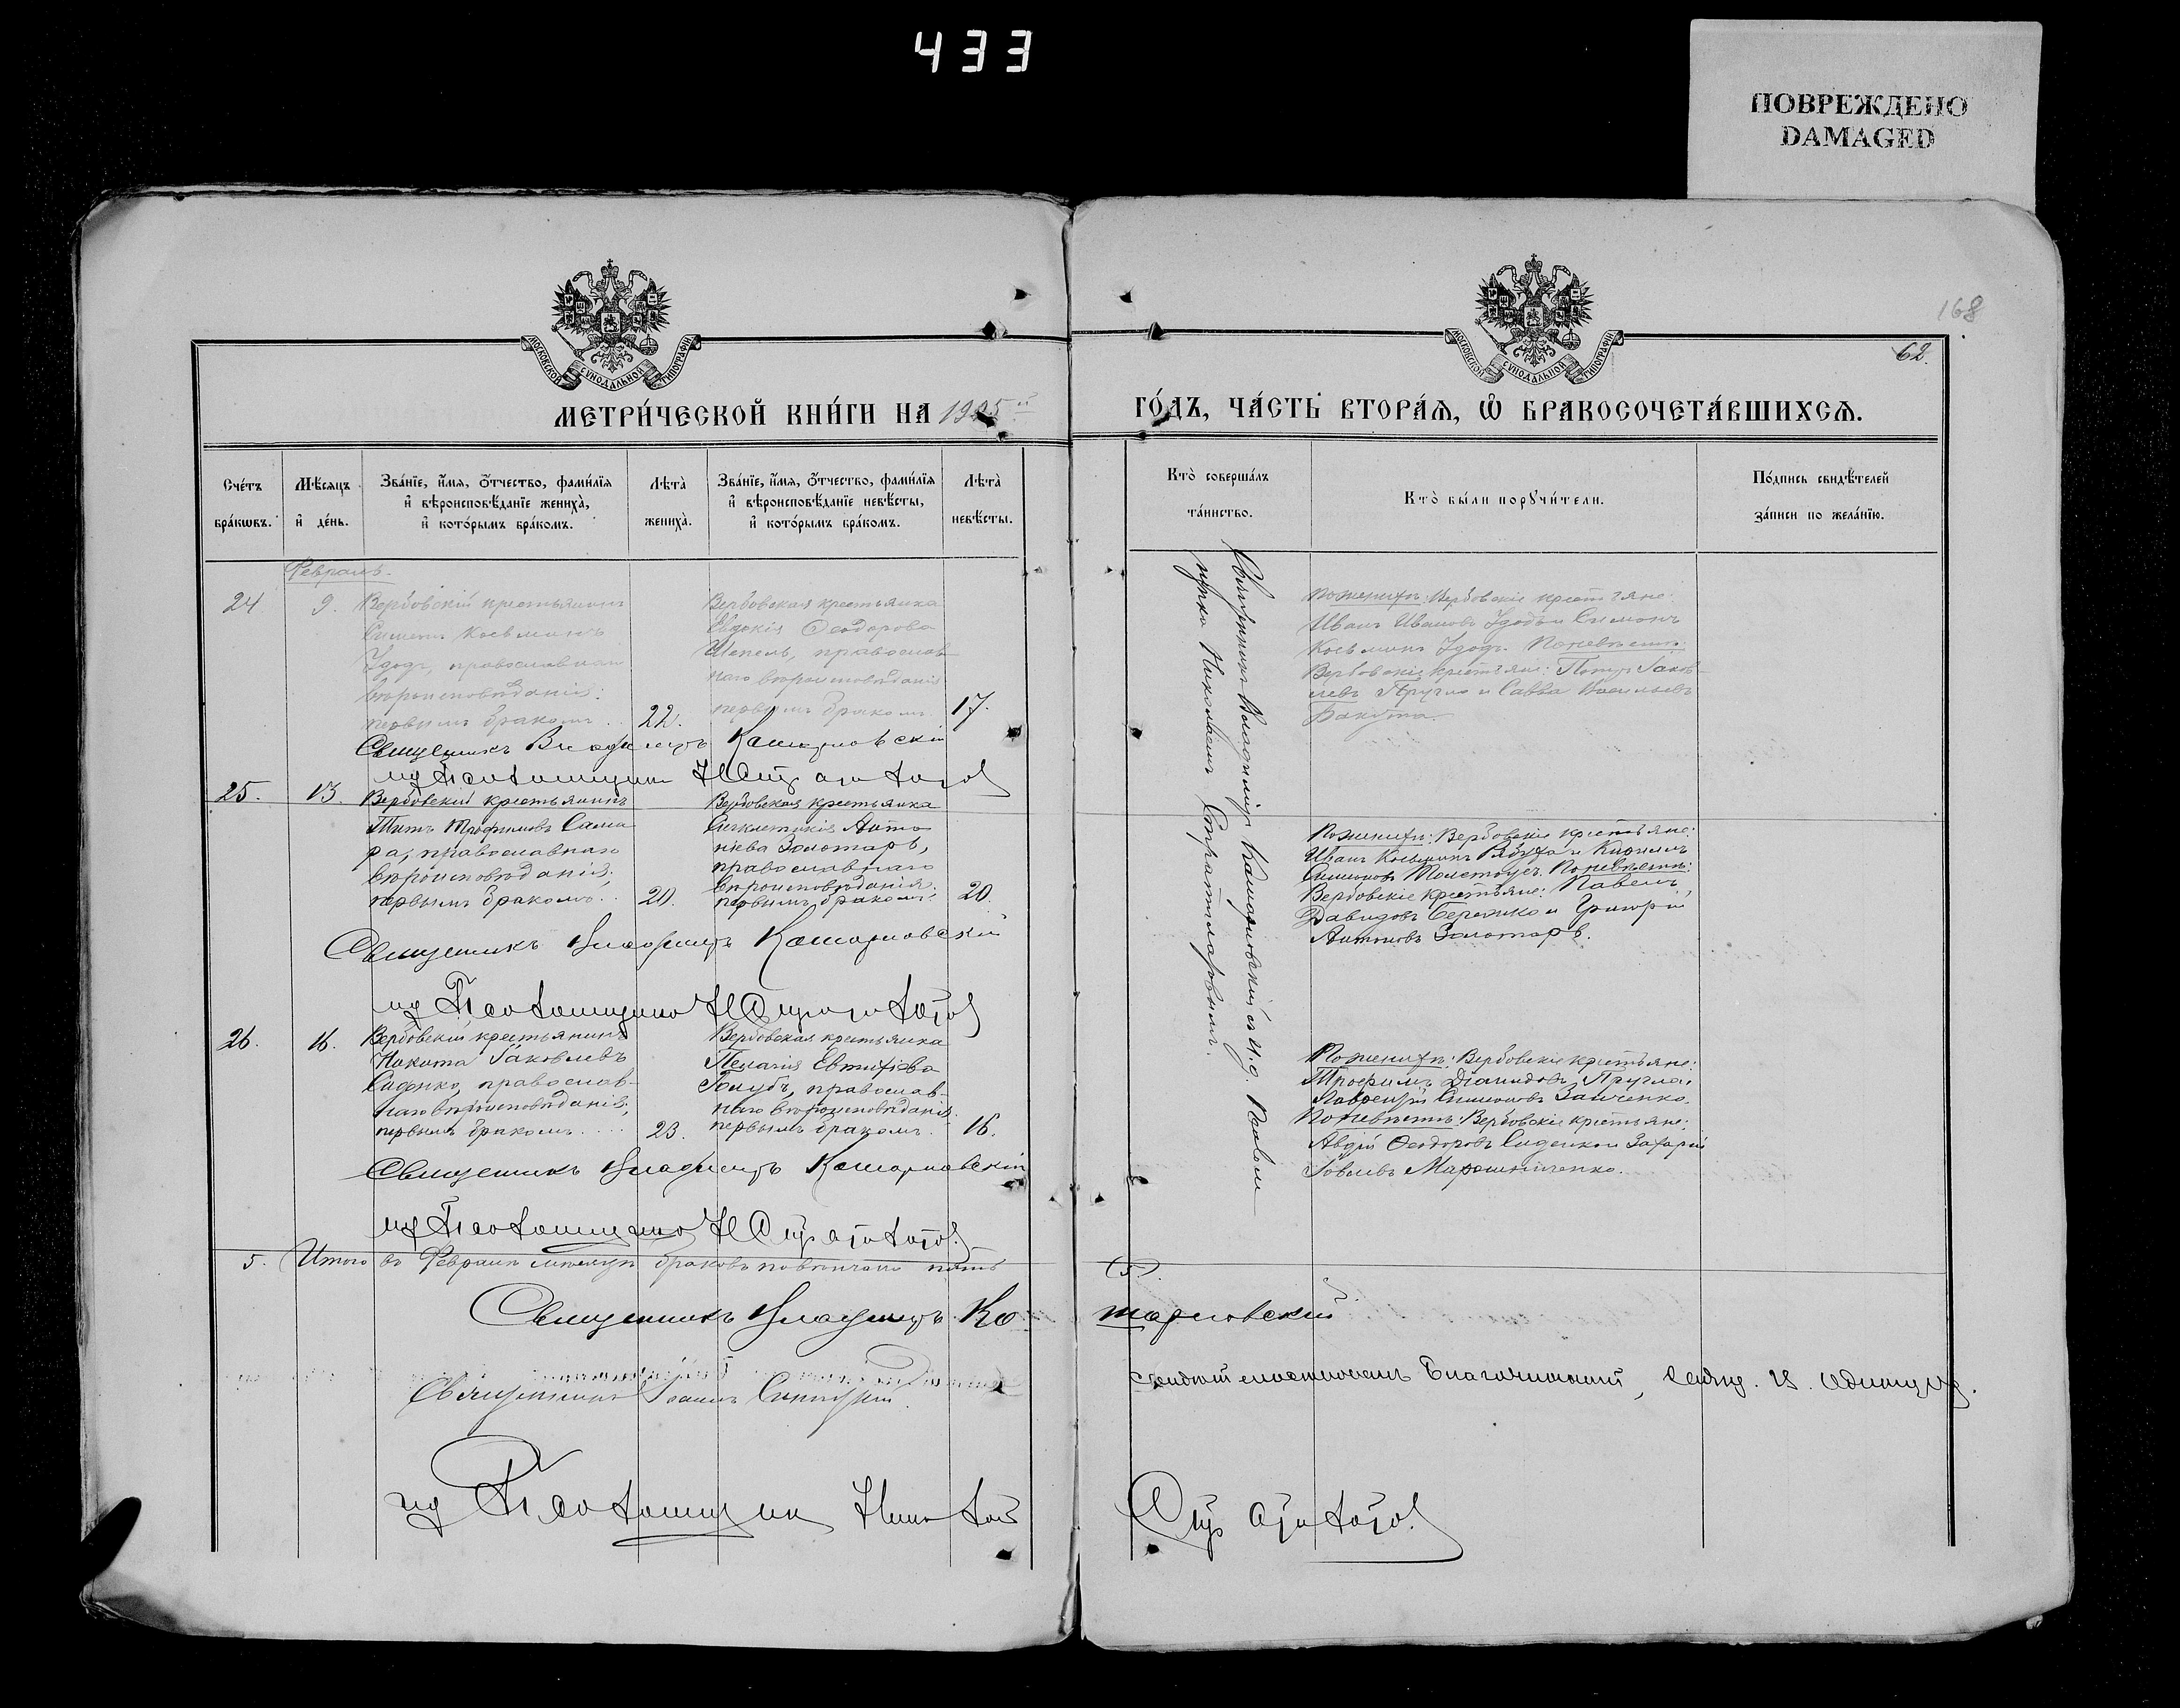 433
ПОВРЕЖДЕНО
DAMAGED
168
62.
МОСКОВСКОЙ СѴНОДАЛЬНОЙ ТИПОГРАФІИ
МОСКОВСКОЙ СѴНОДАЛЬНОЙ ТИПОГРАФІИ
МЕТРИ́ЧЕСКОЙ КНИ́ГИ НА 1905 й
ГО́ДЪ, ЧА́СТЬ ВТОРА́Ѧ, Ѽ БРАКОСОЧЕТА́ВШИХСѦ.
Сче́тъ бра́кѡвъ.
Мѣ́сяцъ и҆ де́нь.
Зва́нїе, и҆́мя, ѻ҆́тчество, фами́лїя
и҆ вѣроисповѣ́данїе жениха̀,
и҆ кото́рымъ бра́комъ.
Лѣта̀ жениха̀.
Зва́нїе, и҆́мя, ѻ҆́тчество, фами́лїя
и҆ вѣроисповѣ́данїе невѣ́сты,
и҆ кото́рымъ бра́комъ.
Лѣта̀ невѣ́сты.
Кто̀ соверша́лъ та́инство.
Кто̀ бы́ли порꙋчи́тели.
По́дпись свидѣ́телей
за́писи по жела́нїю.
Февраль.
24 9. Вербовскій крестьянинъ
Косьминъ
Удодъ, православнаго
вѣроисповѣданія:
первымъ бракомъ . . 22.
Вербовская крестьянка
Евдокія Ѳеодорова
Шепель, православ-
наго вѣроисповѣданія
первымъ бракомъ 17.
Поженихѣ: Вербовскіе крестьяне:
Иванъ Ивановъ Удодъ и Симонъ
Косьминъ Удодъ. Поневѣстѣ:
Вербовскіе крестьяне: Петръ Іаков-
левъ Пругло и Савва
Бакута.
Священникъ Владиміръ Комарновскій
ид Псаломщика Н
25. 13. Вербовскій крестьянинъ
Титъ Трофимовъ Сама
ра, православнаго
вѣроисповѣданія;
первымъ бракомъ . . 20.
Вербовская крестьянка
Синклетикія Анто
ніева Золотарь,
православнаго
вѣроисповѣданія:
первымъ бракомъ. 20.
Поженихѣ: Вербовскіе крестьяне:
Иванъ Косьминъ Рябуха и Кириллъ
Симоновъ Толстоусъ. Поневѣстѣ:
Вербовскіе крестьяне: Павелъ
Давидовъ и Григорій
Антоновъ Золотарь.
Священникъ Владиміръ Комарновскій
ид Псаломщика Н
26. 16. Вербовскій крестьянинъ
Никита Іаковлевъ
Сиденко, православ-
наго вѣроисповѣданія;
первымъ бракомъ . . . . 23.
Вербовская крестьянка
Пелагія Евтихіева
Голубъ, православ-
наго вѣроисповѣданія
первымъ бракомъ. 16.
Поженихѣ: Вербовскіе крестьяне:
Трофимъ Діамидовъ Пругло,
Лаврентій Симоновъ Заиченко.
Поневѣстѣ: Вербовскіе крестьяне:
Авдій Ѳеодоровъ Сиденко и Захарій
Іовлевъ Мирошниченко.
Священникъ Владиміръ Комарновскій
ид Псаломщика Н
Священникъ Владиміръ Комарновскій съ и. д. Псалом
щика Николаемъ
5. Итого въ Февралѣ мѣсяцѣ браковъ повѣнчано пять (5).
Священникъ Владиміръ Комарновскій
Священникъ Іоаннъ
Благочинный,
ид Псаломщика Николай